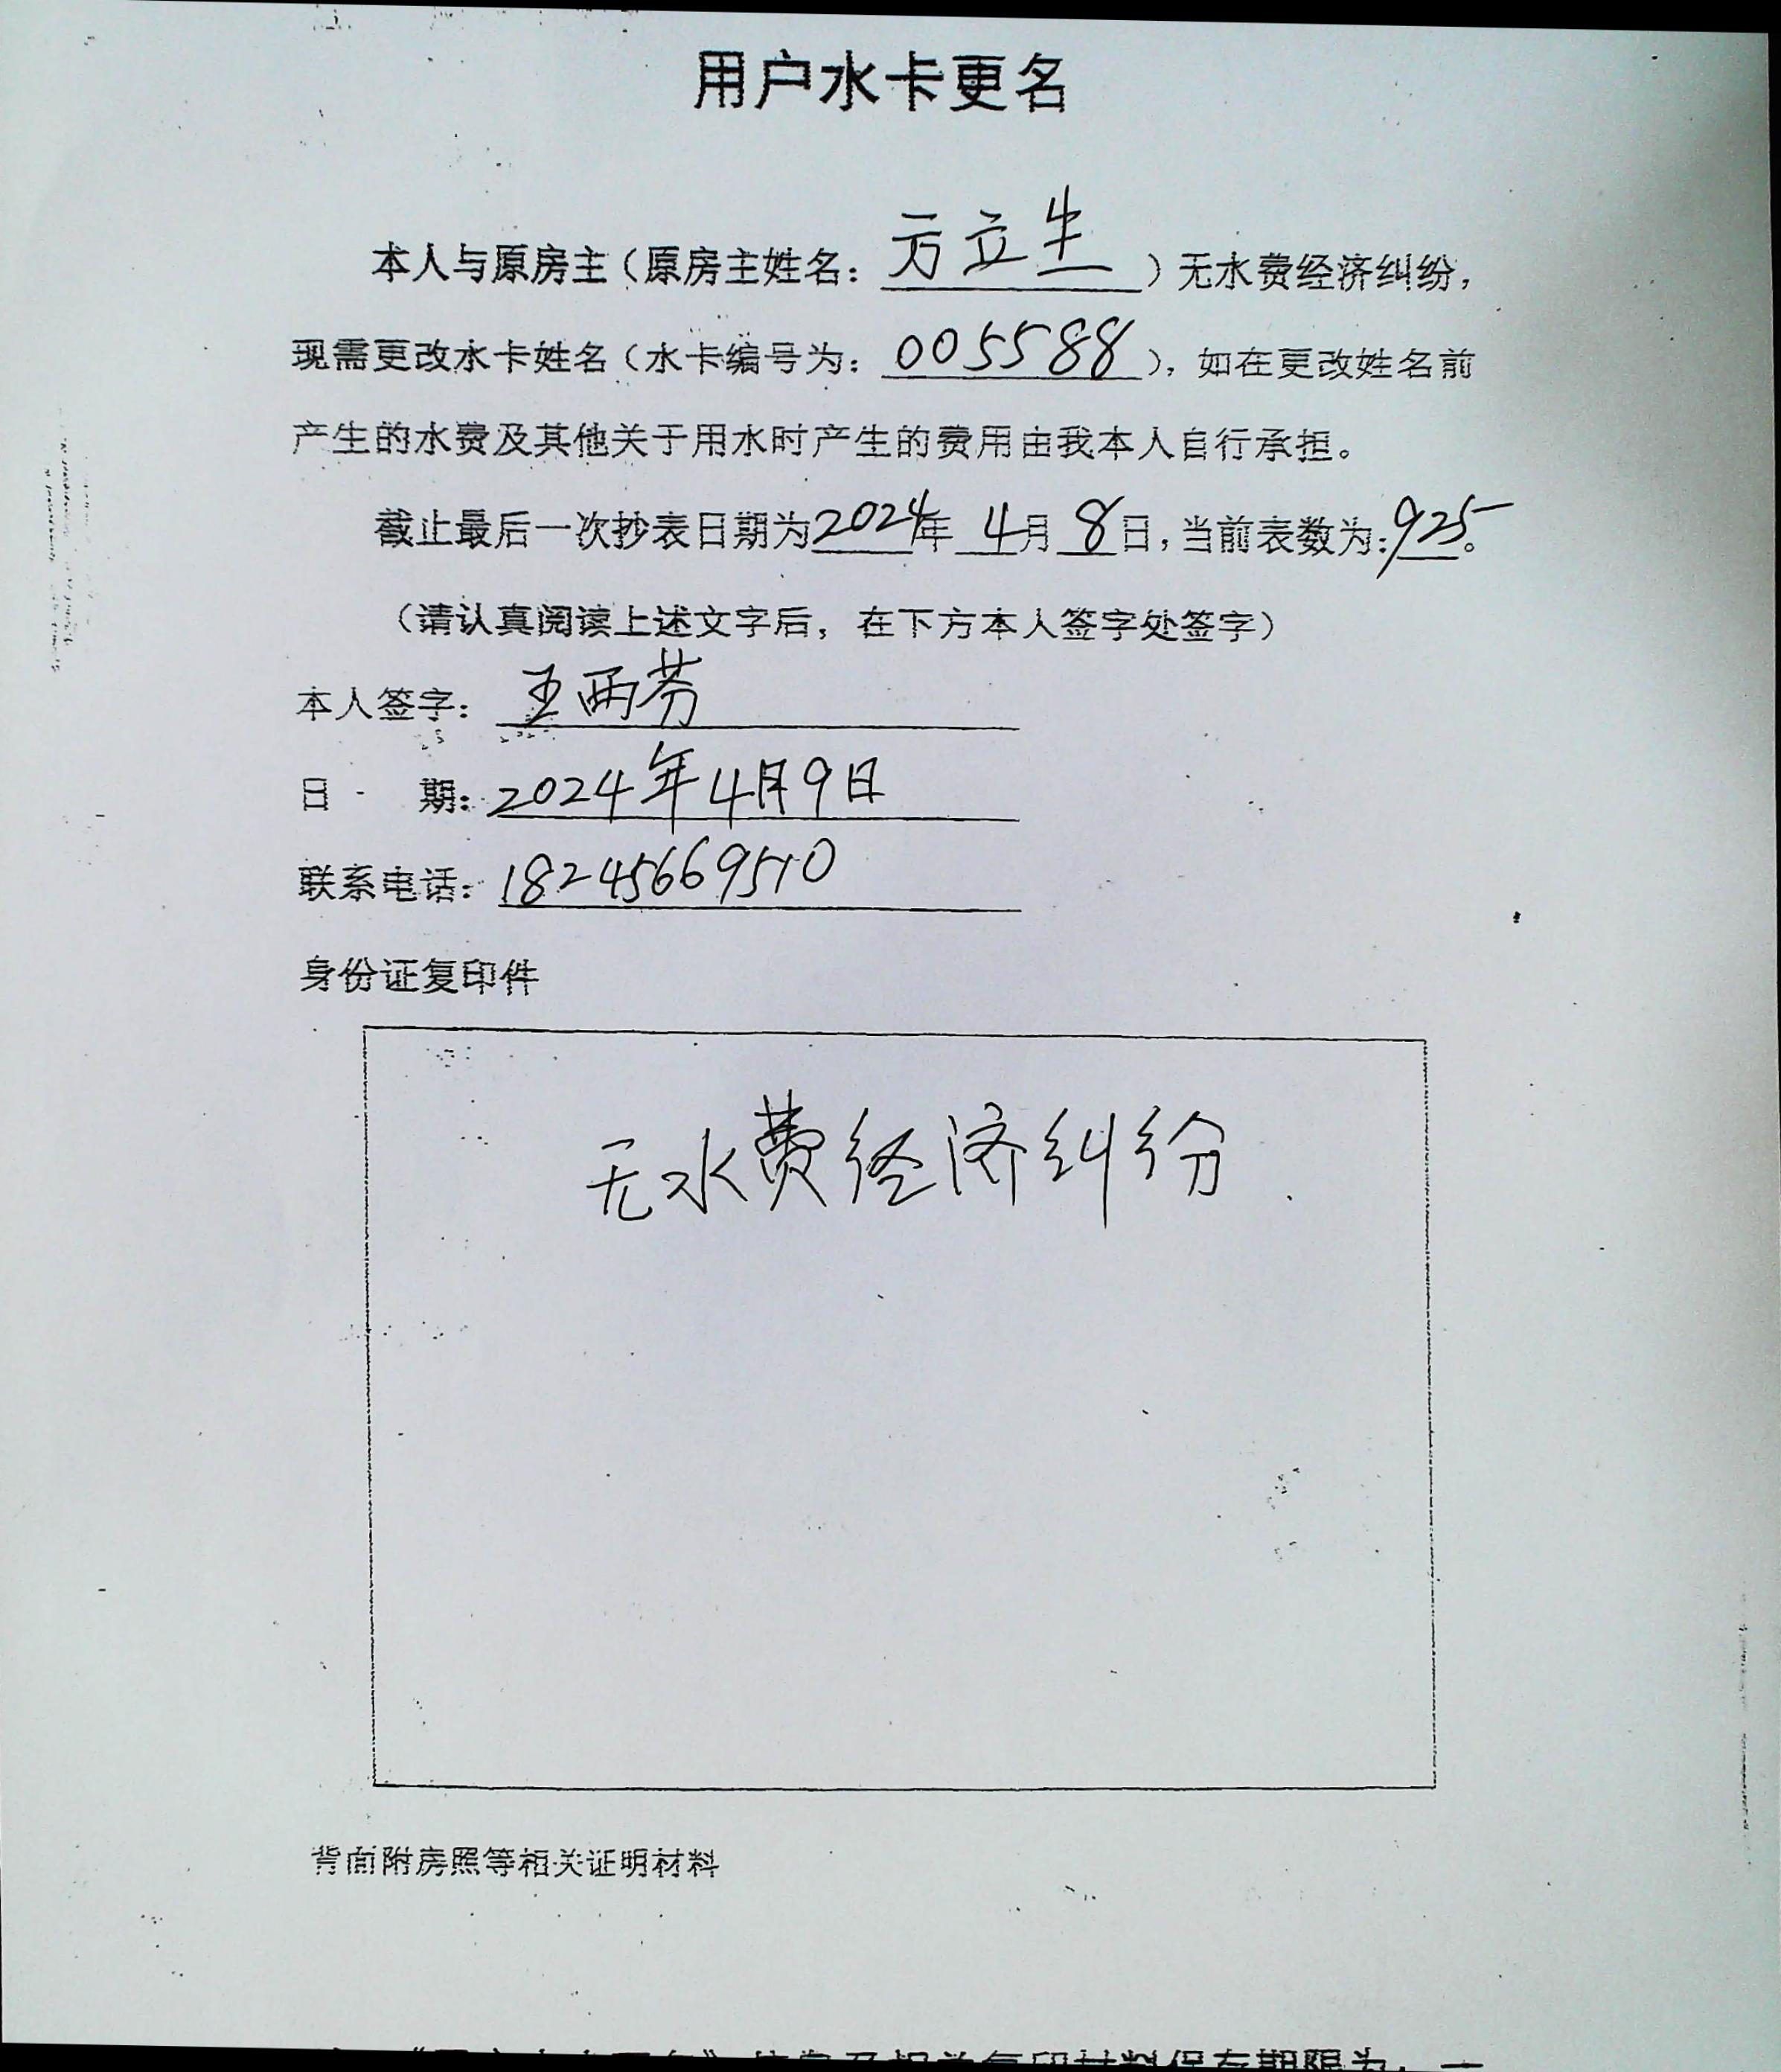 用户水卡更名
本人与原房主（原房主姓名：方立生）无水费经济纠纷，
现需更改水卡姓名（水卡编号为：005588），如在更改姓名前
产生的水费及其他关于用水时产生的费用由我本人自行承担。
截止最后一次抄表日期为2024年4月8日，当前表数为：925。
（请认真阅读上述文字后，在下方本人签字处签字）
本人签字：王两芬
日 期：2024年4月9日
联系电话：18245669510
身份证复印件
无水费经济纠纷
背面附房照等相关证明材料